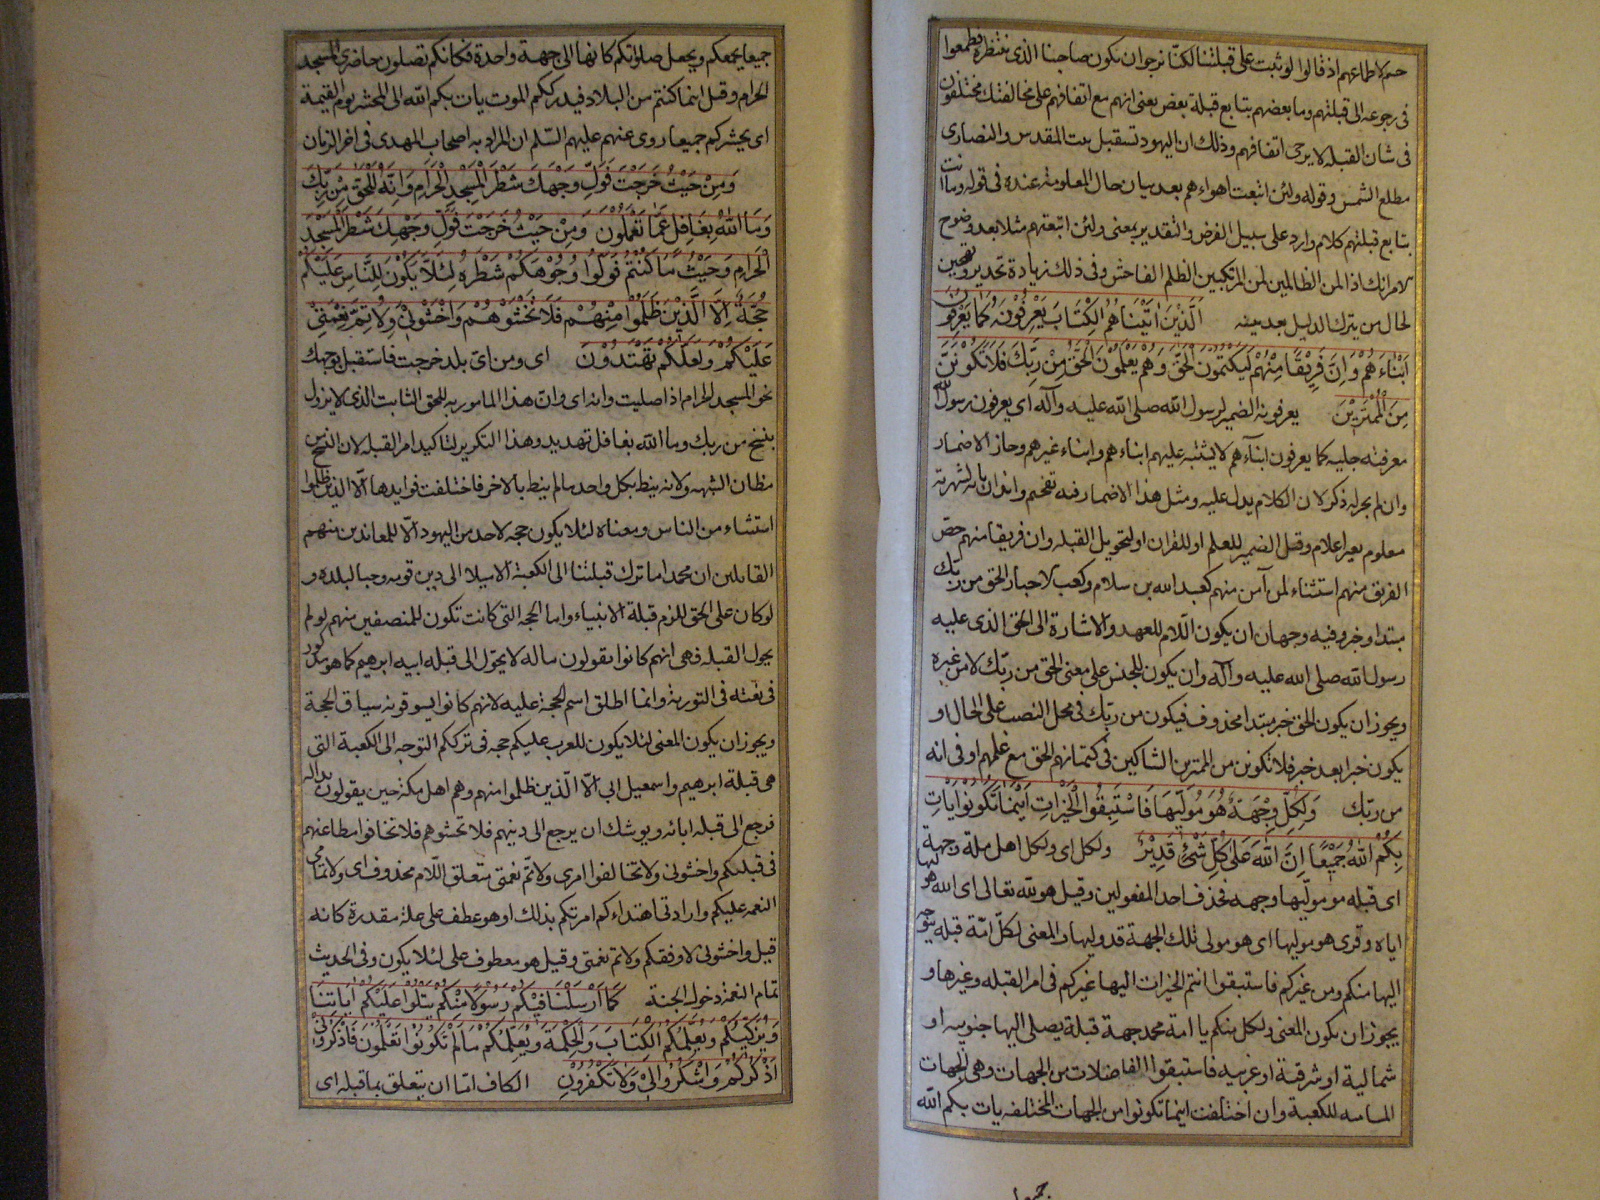 حسم لاطماعهم اذ قالوا لو ثبت على قبلتنا لكنا نرجو ان يكون صاحبنا الذى ننتظره وطمعوا
فى رجوعه الى قبلتهم وما بعضهم بتابع قبلة بعض يعنى انهم مع اتفاقهم على مخالفتك مختلفون
فى شان القبله لا يرجى اتفاقهم وذلك ان اليهود تستقبل بيت المقدس والنصارى
مطلع الشمس وقوله ولئن اتبعت اهواءهم بعد بيان حال المعلومة عنده فى قوله وما انت
بتابع قبلتهم كلام وارد على سبيل الفرض والتقدير بمعنى ولئن اتبعتهم مثلا بعد وضوح
الامر انك اذا لمن الظالمين لمن المرتكبين الظلم الفاحش وفى ذلك زيادة تحذير وتهجين
لحال من يترك الدليل بعد تبينه الَّذِينَ اٰتَيْنَاهُمُ الْكِتَابَ يَعْرِفُوْنَهُ كَمَا يَعْرِفُونَ
اَبْنَاءَهُمْ وَاِنَّ فَرِيْقًا مِنْهُمْ لَيَكْتُمُونَ الْحَقَّ وَهُمْ يَعْلَمُوْنَ الْحَقُّ مِنْ رَبِّكَ فَلَا تَكُوْنَنَّ
مِنَ الْمُمْتَرِيْنَ يعرفونه الضمير لرسول الله صلى الله عليه وآله اى يعرفون رسول الله
معرفة جلية كما يعرفون ابنآءهم لا يشتبه عليهم ابناءهم وابناء غيرهم وجاز الاضمار
وان لم يجر له ذكر لان الكلام يدل عليه ومثل هذا الاضمار فيه تفخيم وايذان بانه لشهرته
معلوم بغير اعلام وقيل الضمير للعلم او للقران او لتحويل القبله وان فريقا منهم خصّ
الفريق منهم استثناء لمن آمن منهم كعبد الله بن سلام وكعب الاحبار الحق من ربك
مبتدا وخبر وفيه وجهان ان يكون اللام للعهد والاشارة الى الحق الذى عليه
رسول الله صلى الله عليه وآله وان يكون للجنس على معنى الحق من ربّك لا من غيره
ويجوز ان يكون الحق خبر مبتدا محذوف فيكون من ربّك فى محل النصب على الحال او
يكون خبرا بعد خبر فلا تكونن من الممترين الشاكين فى كتمانهم الحق مع علمهم او فى انه
من ربّك وَلِكُلٍّ وِجْهَةٌ هُوَ مُوَلِّيْهَا فَاسْتَبِقُوا الْخَيْرَاتِ اَيْنَمَا تَكُونُوا يَاْتِ
بِكُمُ اللهُ جَمِيْعًا اِنَّ اللهَ عَلٰى كُلِّ شَىْءٍ قَدِيْرٌ ولكل اى ولكل اهل ملة وجهة
اى قبله هو موليها وجهه فحذف احد المفعولين وقيل هو لله تعالى اى الله هو موليها
اياه وقرى هو موليها اى هو مولى تلك الجهة قد وليها والمعنى لكلّ امّة قبله يتوجه
اليها منكم ومن غيركم فاستبقوا انتم الخيرات اليها غيركم فى امر القبله وغيرها و
يجوز ان يكون المعنى ولكل منكم يا امة محمد جهة قبلة يصلى اليها جنوبيه او
شمالية او شرقية او غربيه فاستبقوا الفاضلات من الجهات وهى الجهات
المسامته للكعبة وان اختلفت اينما تكونوا من الجهات المختلفه يات بكم الله
جميعا
جميعا يجمعكم ويجعل صلواتكم كانها الى جهة واحدة فكانكم تصلون حاضرى المسجد
الحرام وقيل اينما كنتم من البلاد فيدرككم الموت يات بكم الله الى المحشر يوم القيمة
اى يحشركم جميعا وروى عنهم عليهم السّلم ان المراد به اصحاب المهدى فى اخر الزمان
وَمِنْ حَيْثُ خَرَجْتَ فَوَلِّ وَجْهَكَ شَطْرَ الْمَسْجِدِ الْحَرَامِ وَاِنَّهُ لَلْحَقُّ مِنْ رَبِّكَ
وَمَا اللهُ بِغَافِلٍ عَمَّا تَعْمَلُوْنَ وَمِنْ حَيْثُ خَرَجْتَ فَوَلِّ وَجْهَكَ شَطْرَ الْمَسْجِدِ
الْحَرَامِ وَحَيْثُ مَا كُنْتُمْ فَوَلُّوا وُجُوْهَكُمْ شَطْرَهُ لِئَلَّا يَكُوْنَ لِلنَّاسِ عَلَيْكُمْ
حُجَّةٌ اِلَّا الَّذِيْنَ ظَلَمُوا مِنْهُمْ فَلَا تَخْشَوْهُمْ وَاخْشَوْنِيْ وَلِاُتِمَّ نِعْمَتِيْ
عَلَيْكُمْ وَلَعَلَّكُمْ تَهْتَدُوْنَ اى ومن اىّ بلد خرجت فاستقبل بوجهك
نحو المسجد الحرام اذا صليت وانه اى وانّ هذا المامور به للحق الثابت الذى لا يزول
بنسخ من ربك وما الله بغافل تهديد وهذا التكرير لتاكيد امر القبله لان النسخ من
مظان الشبهه ولانه ينط بكل واحد ما لم ينط بالاخر فاختلفت فوايدها الّا الذين ظلموا
استثناء من الناس ومعناه لئلا يكون حجه لاحد من اليهود الّا للمعاندين منهم
القايلين ان محمدا ما ترك قبلتنا الى الكعبة الا ميلا الى دين قومه وحبا لبلده و
لو كان على الحق للزم قبلة الانبياء واما الحجه التى كانت تكون للمنصفين منهم لو لم
يحول القبله فهى انهم كانوا يقولون ما له لا يحوّل الى قبله ابيه ابرهيم كما هو مذكور
فى نعته فى التورية وانما اطلق اسم الحجة عليه لانهم كانوا يسوقونه سياق الحجة
ويجوز ان يكون المعنى لئلا يكون للعرب عليكم حجه فى ترككم التوجه الى الكعبة التى
هى قبلة ابرهيم واسمعيل ابى الّا الّذين ظلموا منهم وهم اهل مكة حين يقولون بدا له
فرجع الى قبله ابائه ويوشك ان يرجع الى دينهم فلا تخشوهم فلا تخافوا مطاعنهم
فى قبلتكم واخشونى ولا تخالفوا امرى ولاتمّ نعمتى متعلق اللّام محذوف اى ولاتمامى
النعمه عليكم وارادتى اهتداءكم امرتكم بذلك او هو عطف على علة مقدرة كانه
قيل واخشونى لاوفقكم ولاتم نعمتى وقيل هو معطوف على لئلا يكون وفى الحديث
تمام النعمة دخول الجنة كَمَا اَرْسَلْنَا فِيْكُمْ رَسُوْلًا مِنْكُمْ يَتْلُوا عَلَيْكُمْ اٰيَاتِنَا
وَيُزَكِّيْكُمْ وَيُعَلِّمُكُمُ الْكِتَابَ وَالْحِكْمَةَ وَيُعَلِّمُكُمْ مَا لَمْ تَكُوْنُوْا تَعْلَمُوْنَ فَاذْكُرُوْنِيْ
اَذْكُرْكُمْ وَاشْكُرُوْا لِيْ وَلَا تَكْفُرُوْنِ الكاف امّا ان يتعلق بما قبله اى